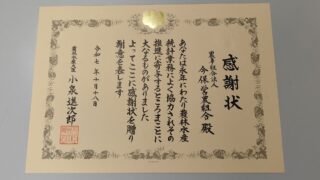 感謝状
農事組合法人
今保営農組合 殿
あなたは永年にわたり農林水産
統計業務によく協力されその
推進に寄与するところまことに
大なるものがありました
よってここに感謝状を贈り
謝意を表します
令和七年十月十八日
農林水産大臣 小泉進次郎